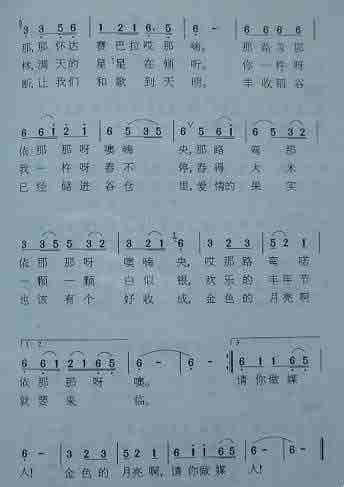 3 3 5 6 | 1 2 1 6· 5 | 6 - | 3 3 5 3 |
那,那怀达 赛巴拉哎那 喃。 那
林,满天的 星星在倾 听。 你一杵呀
断,让我们 和歌到天 明。 丰收稻谷
6 6 1 2 1 | 6 5 3 5 | 6 6 5
依那那呀噢喃 央,那路 那
我一杵呀舂不 停,舂得大米
已经储进谷仓 里,爱情的果实
3 3 5 5 3 2 | 3 2 1 6
依那那呀 噢喃央,哎那路 诺
一颗一颗 白似银,欢乐的丰年节
也该有个 好收成,金色的月亮啊
1.2. 3.
6 6 1 2 1 6 5 | 6 - | 6 - :‖ 6 1 2 1 6 5
依那那呀 噢。 请你做媒
就要来 临。
6 - | 3 2 3 | 5 2 1 | 6 6 1 1 6 5 | 6 - | 6 - ‖
人! 金色的 月亮啊,请你做媒 人!